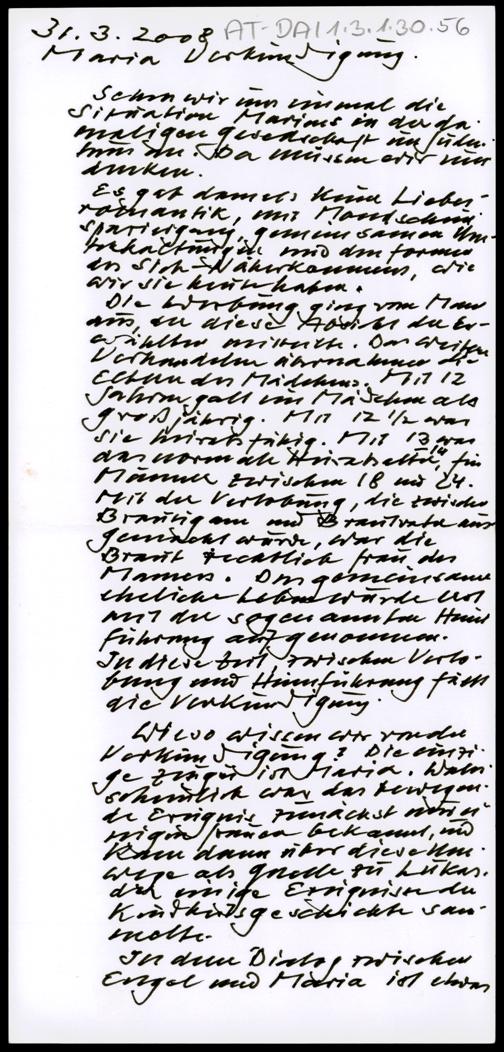 31.3.2008 AT-DA 1.3.1.30.56
Maria Verkündigung.
Schaun wir uns einmal die
Situation Mariens in der da-
maligen Gesellschaft im Juden-
tum an. Da müssen wir um-
denken.
Es gab damals keine Liebes-
romantik, mit Mondschein-
spaziergang, gemeinsamen Un-
terhaltungen und den Formen
des Sich-Näherkommens, wie
wir sie heute haben.
Die Werbung ging vom Mann
aus, der diese Absicht der Er-
wählten mitteilte. Das weitere
Verhandeln übernahmen die
Eltern des Mädchens. Mit 12
Jahren galt ein Mädchen als
großjährig. Mit 12 1/2 war
sie heiratsfähig. Mit 13 war
das normale Heiratsalter, für
Männer zwischen 18 und 24.
Mit der Verlobung, die zwischen
Bräutigam und Brautvater aus
gemacht wurde, war die
Braut rechtlich Frau des
Mannes. Das gemeinsame
eheliche Leben wurde erst
mit der sogenannten Heim
führung aufgenommen.
In diese Zeit zwischen Verlo-
bung und Heimführung fällt
die Verkündigung.
Wieso wissen wir von der
Verkündigung? Die einzi-
ge Zeugin ist Maria. Wahr-
scheinlich war das bewegen-
de Ereignis zunächst nur ei-
nigen Frauen bekannt, und
kam dann über diese Um-
wege als Quelle zu Lukas.
der einige Ereignisse der
Kindheitsgeschichte sam-
melte.
In dem Dialog zwischen
Engel und Maria ist etwas